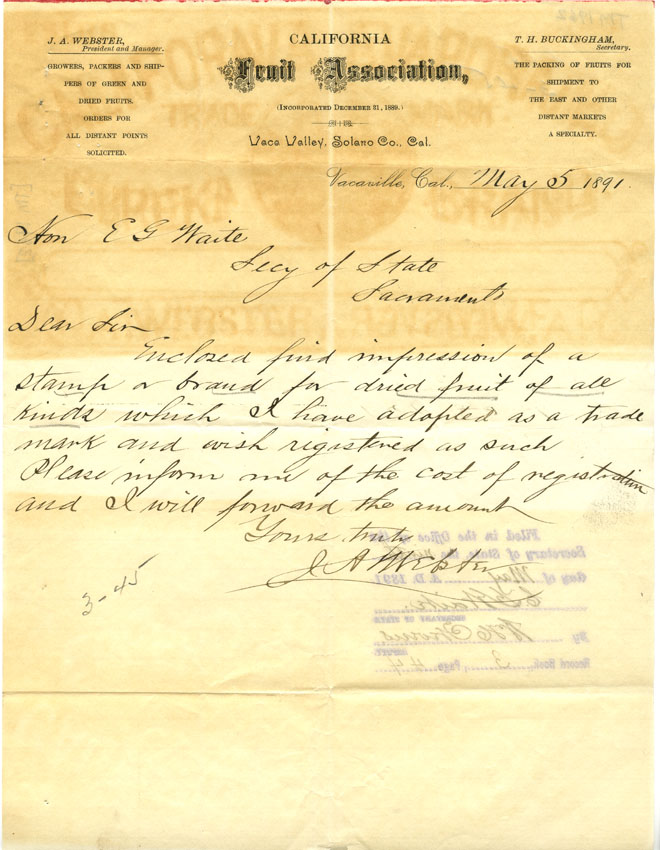 J. A. WEBSTER,
President and Manager.
GROWERS, PACKERS AND SHIP-
PERS OF GREEN AND
DRIED FRUITS.
ORDERS FOR
ALL DISTANT POINTS
SOLICITED.
CALIFORNIA
Fruit Association,
(INCORPORATED DECEMBER 31, 1889.)
Vaca Valley, Solano Co., Cal.
T. H. BUCKINGHAM,
Secretary.
THE PACKING OF FRUITS FOR
SHIPMENT TO
THE EAST AND OTHER
DISTANT MARKETS
A SPECIALTY.
Vacaville, Cal., May 5 1891.
Hon E G Waite
Secy of State
Sacramento
Dear Sir
Enclosed find impression of a
stamp or brand for dried fruit of all
kinds which I have adopted as a trade
mark and wish registered as such
Please inform me of the cost of registration
and I will forward the amount
Yours truly
J A Webster
Filed in the Office of the
Secretary of State the
day of May A. D. 1891
E G Waite
SECRETARY OF STATE
By
DEPUTY
Record Book 3 Page 44
3-45